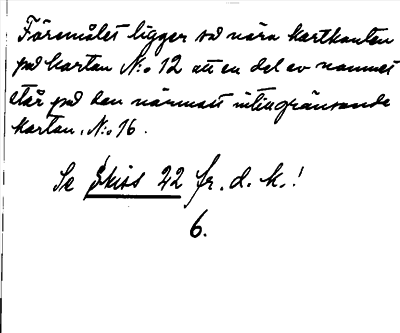 Föremålet ligger så nära kartkanten
på kartan N:o 12 att en del av namnet
står på den närmast intillgränsande
kartan, N:o 16.
Se Skiss 22 fr. d. k.!
6.